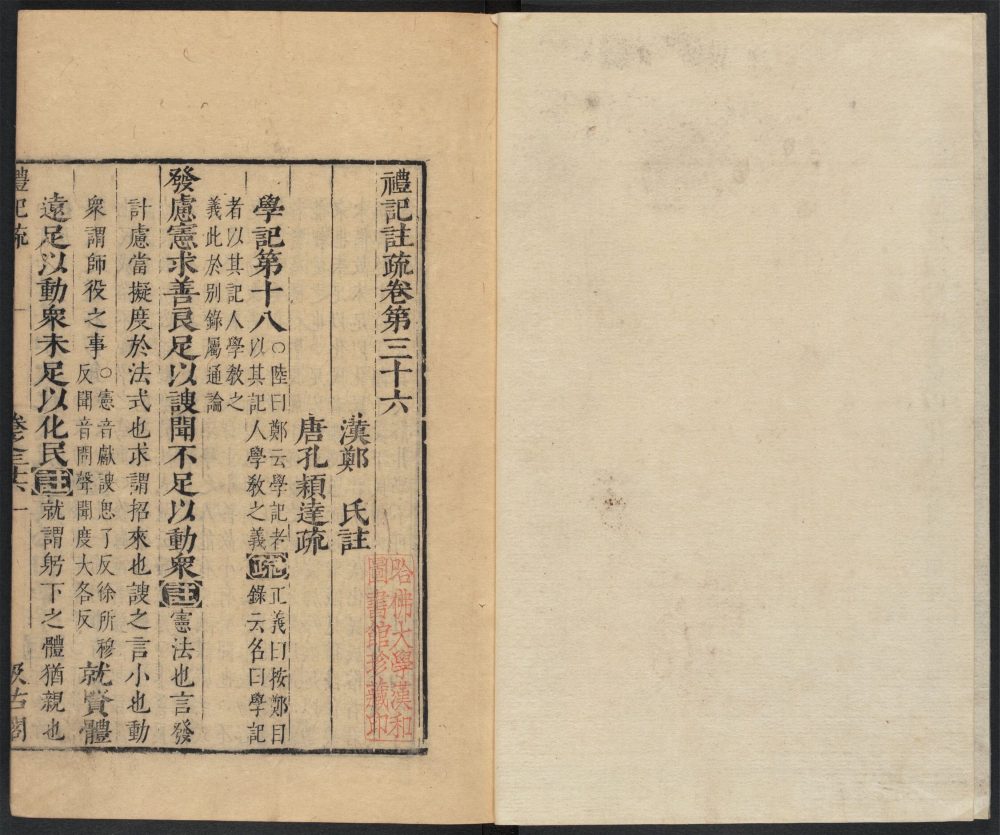 禮記註疏卷第三十六
漢鄭 氏註
唐孔穎達疏
哈佛大學漢和
圖書館珍藏印
學記第十八
○陸曰鄭云學記者
以其記人學教之義
疏
正義曰按鄭目
錄云名曰學記
者以其記人學教之
義此於別錄屬通論
發慮憲求善良足以謏聞不足以動衆註憲法也言發
計慮當擬度於法式也求謂招來也謏之言小也動
衆謂師役之事
○憲音獻謏思了反徐所穆
反聞音問聲聞度大各反
就賢體
遠足以動衆未足以化民註就謂躬下之體猶親也
禮記疏 卷之三十六 一 汲古閣